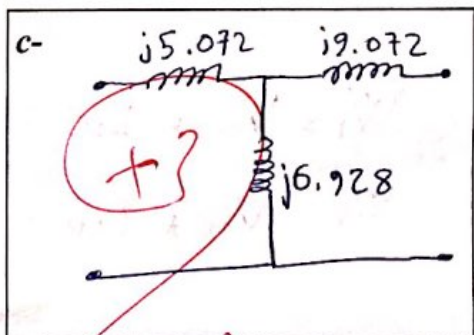 c-
j5.072
j9.072
j6.928
+3